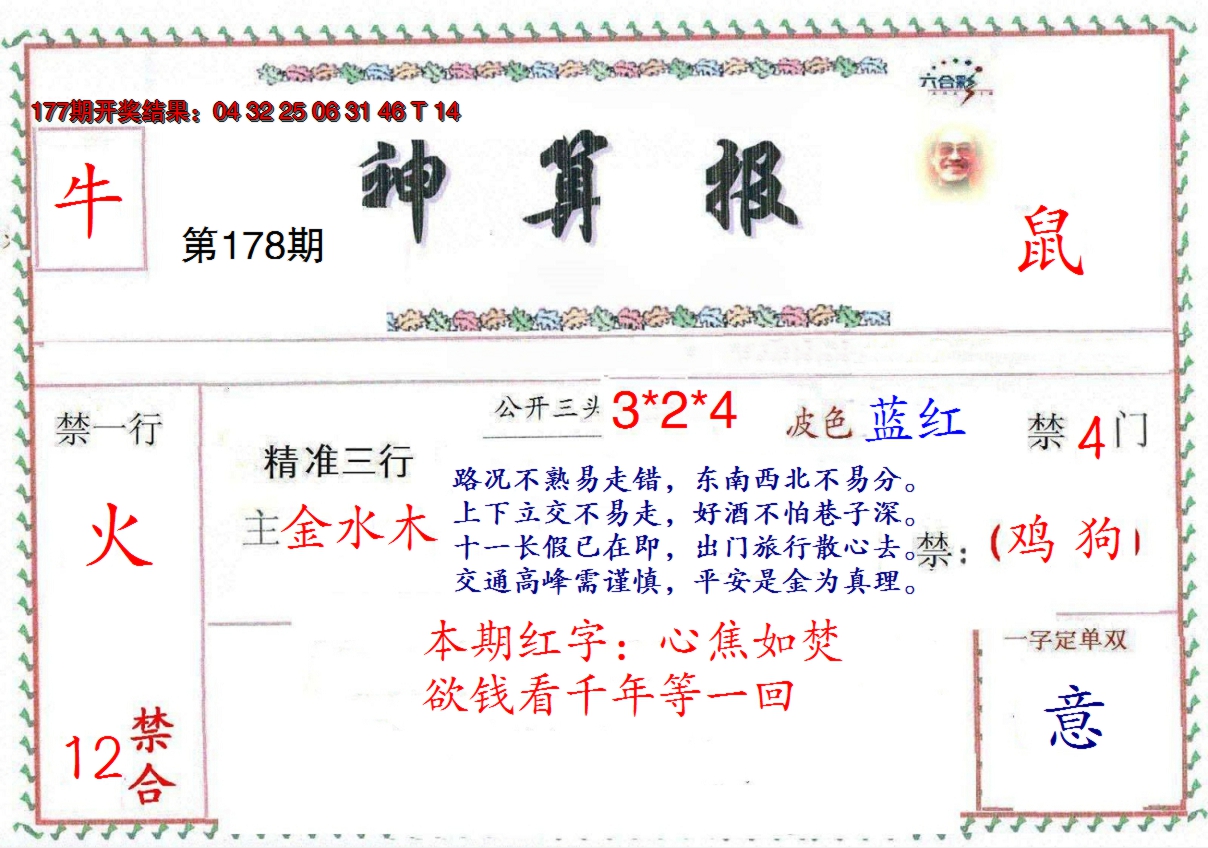 六合彩
177期开奖结果：04 32 25 06 31 46 T 14
牛
神算报
第178期
鼠
禁一行
火
12禁合
精准三行
主金水木
公开三头 3*2*4
波色 蓝红
禁4门
路况不熟易走错，东南西北不易分。
上下立交不易走，好酒不怕巷子深。
十一长假已在即，出门旅行散心去。
交通高峰需谨慎，平安是金为真理。
禁：（鸡 狗）
本期红字：心焦如焚
欲钱看千年等一回
一字定单双
意